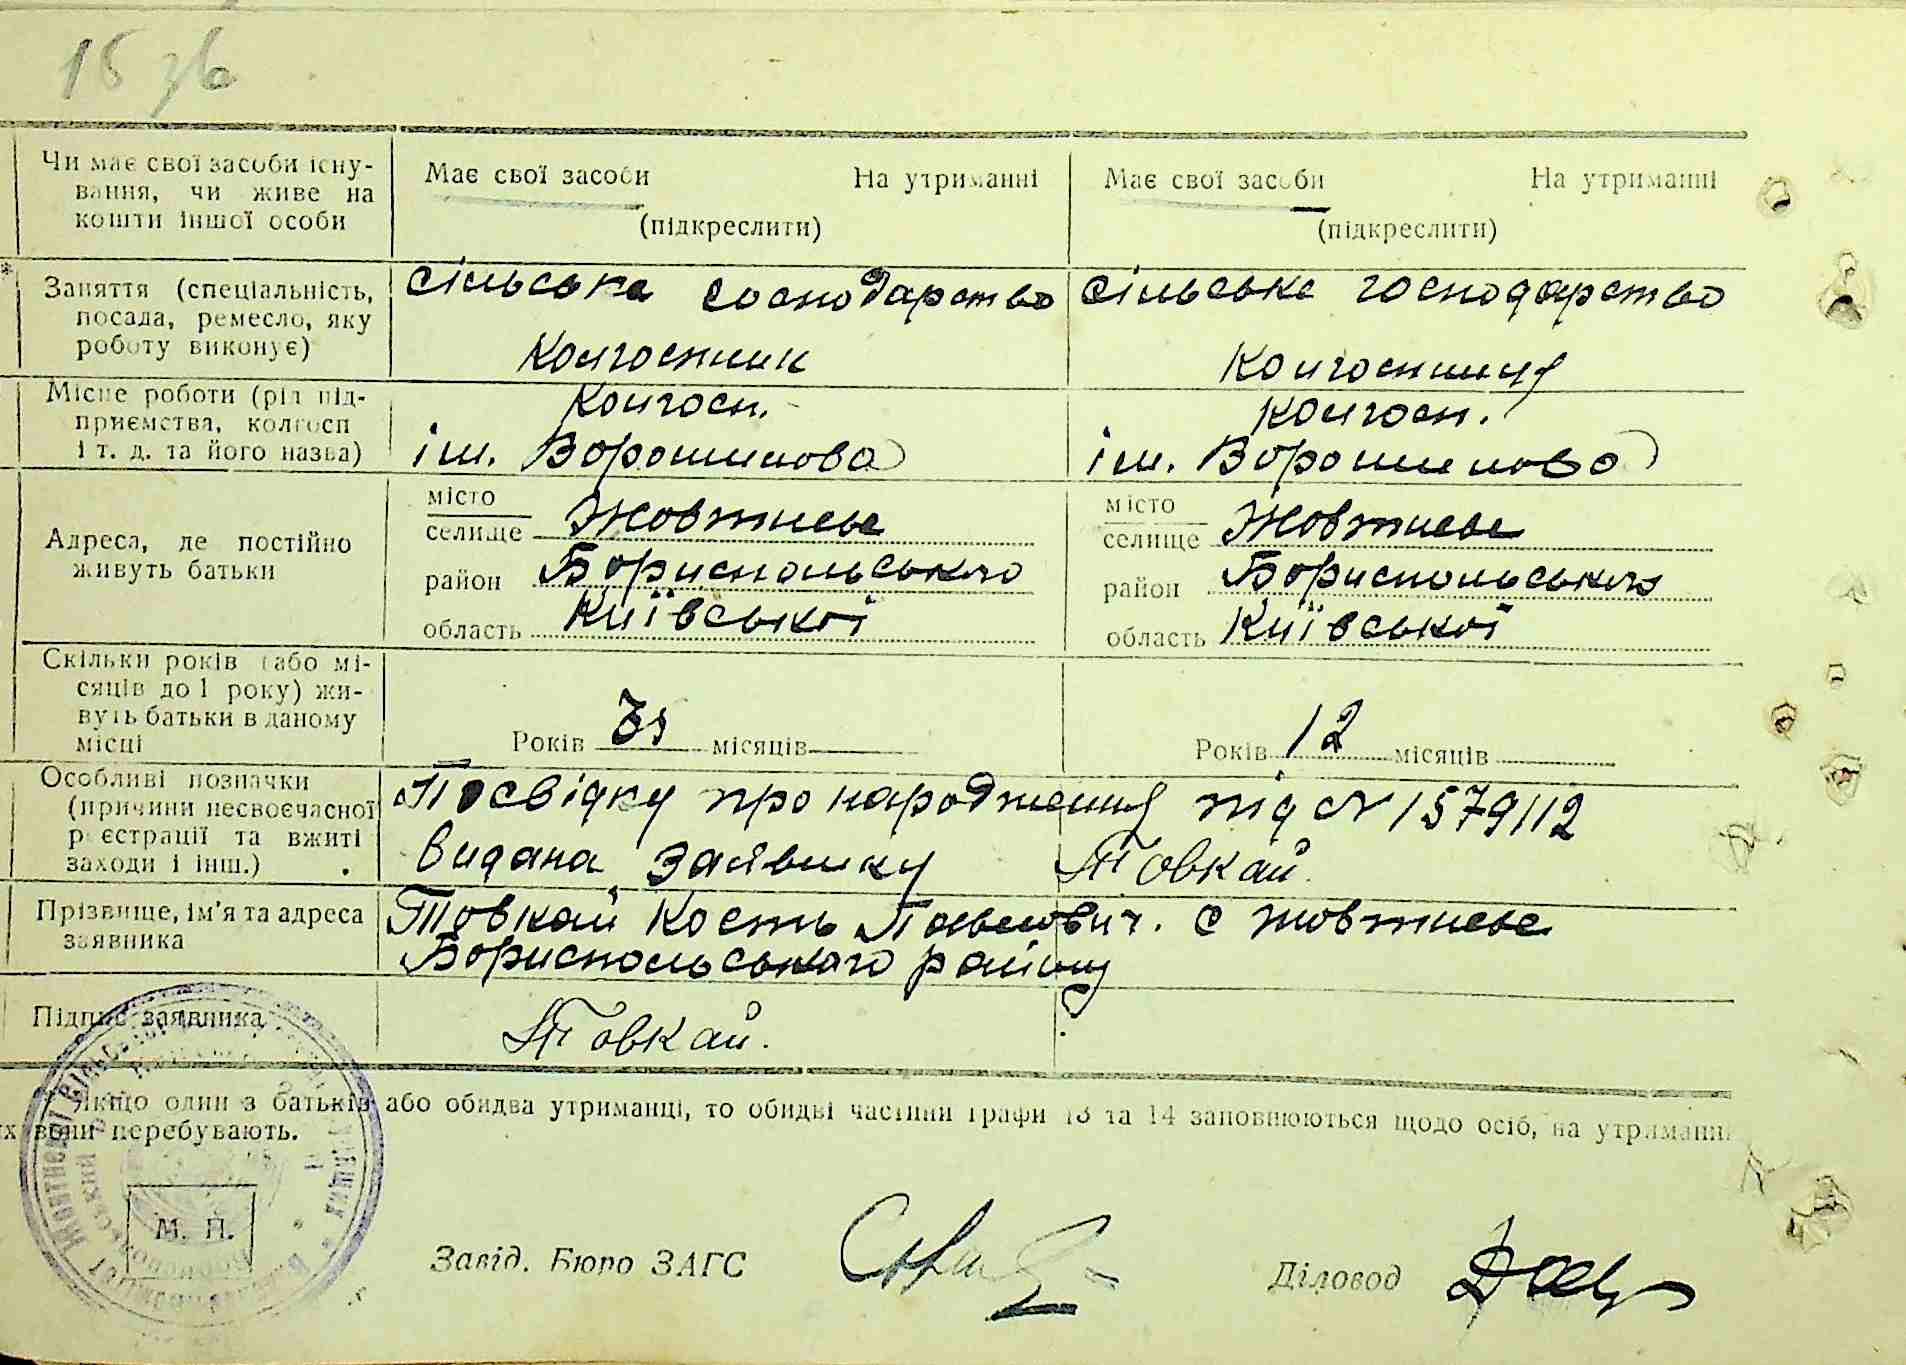 15 зв
Чи має свої засоби існу-
вання, чи живе на
кошти іншої особи
Має свої засоби На утриманні
(підкреслити)
Має свої засоби На утриманні
(підкреслити)
* Заняття (спеціальність,
посада, ремесло, яку
роботу виконує)
Сільське господарство
Колгоспник
Сільське господарство
Колгоспниця
Місце роботи (рід під-
приємства, колгосп
і т. д. та його назва)
Колгосп.
ім. Ворошилова
Колгосп.
ім. Ворошилова
Адреса, де постійно
живуть батьки
місто
селище Жовтневе
район Бориспольського
область Київської
місто
селище Жовтневе
район Бориспольського
область Київської
Скільки років (або мі-
сяців до 1 року) жи-
вуть батьки в даному
місці
Років місяців
Років 12 місяців
Особливі позначки
(причини несвоєчасної
реєстрації та вжиті
заходи і інш.)
Посвідку про народження під № 1579112
видана заявнику Товкай.
Прізвище, ім'я та адреса
заявника
Товкай Кость Павлович. с Жовтневе
Бориспольського району
Підпис заявника
Товкай.
Якщо один з батьків або обидва утриманці, то обидві частини графи 13 та 14 заповнюються щодо осіб, на утриманні
их вони перебувають.
М. П.
Завід. Бюро ЗАГС
Діловод